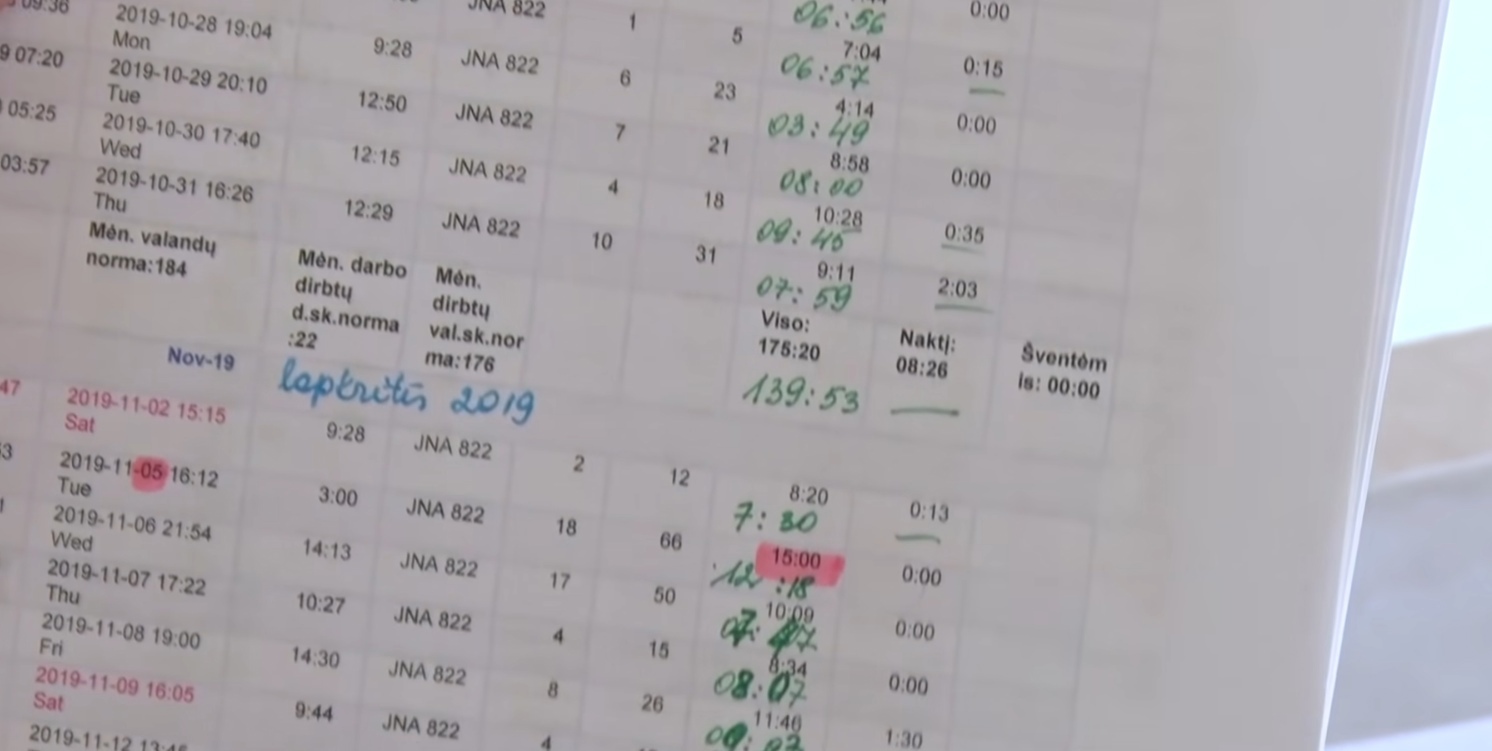 0:00
06:56
JNA 822 1 5 7:04 0:15
06:57
09:36 2019-10-28 19:04 9:28 JNA 822 6 23 4:14 0:00
Mon 03:49
07:20 2019-10-29 20:10 12:50 JNA 822 7 21 8:58 0:00
Tue 08:00
05:25 2019-10-30 17:40 12:15 JNA 822 4 18 10:28 0:35
Wed 09:45
03:57 2019-10-31 16:26 12:29 JNA 822 10 31 9:11 2:03
Thu 07:59
Mėn. valandų Mėn. darbo Mėn. Viso: Naktį: Šventėm
norma:184 dirbtų dirbtų 175:20 08:26 is: 00:00
d.sk.norma val.sk.nor
:22 ma:176
139:53
Nov-19 lapkritis 2019
47 2019-11-02 15:15 9:28 JNA 822 2 12 8:20 0:13
Sat 7:30
2019-11-05 16:12 3:00 JNA 822 18 66 15:00 0:00
Tue 12:18
2019-11-06 21:54 14:13 JNA 822 17 50 10:09 0:00
Wed
2019-11-07 17:22 10:27 JNA 822 4 15 8:34 0:00
Thu 08:07
2019-11-08 19:00 14:30 JNA 822 8 26 11:46 1:30
Fri
2019-11-09 16:05 9:44 JNA 822 4
Sat
2019-11-12